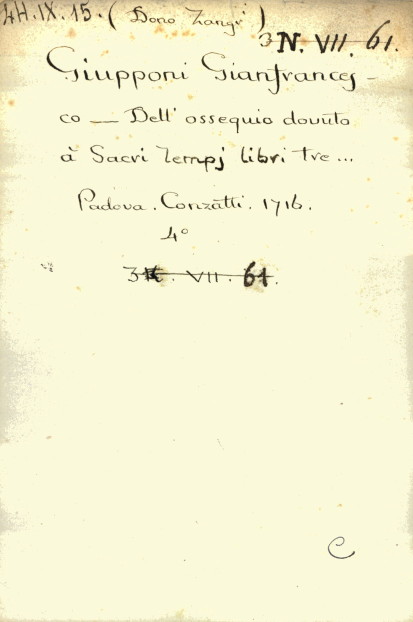 4H.IX.15. (Dono Zangi)
3N. VII. 61.
Giupponi Gianfrances-
co — Dell' ossequio dovuto
à Sacri Tempj libri tre ...
Padova. Conzatti. 1716.
4°
3N. VII. 61.
C